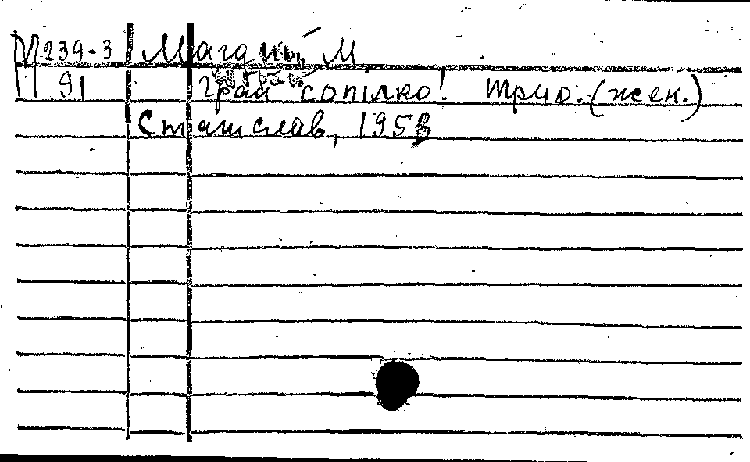 П239-3 Магаль М
91 Грай сопілко! Трио. (жен.)
Станислав, 1953